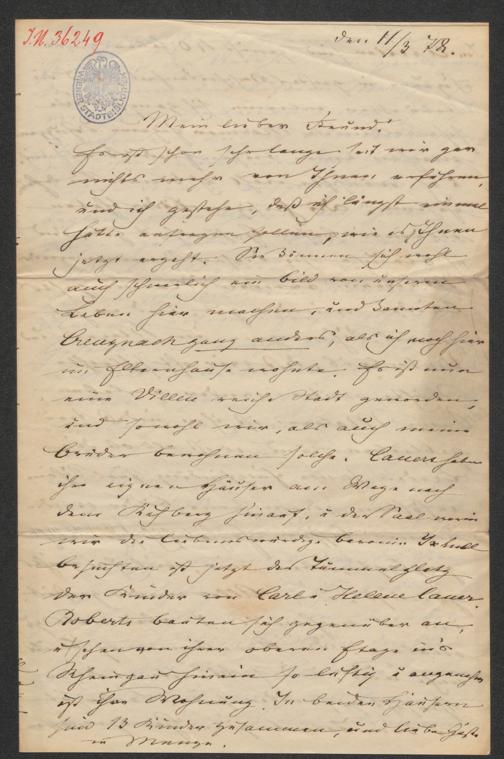 J.N. 36249
den 11/3 78.
Mein lieber Freund!
Es ist schon sehr lange seit wir gar
nichts mehr von Ihnen erfuhren,
und ich gestehe, daß ich längst einmal
hätte anfragen sollen, wie es Ihnen
jetzt ergeht. Sie können sich wohl
auch schwerlich ein Bild von unserem
Leben hier machen, und kannten
Creuznach ganz anders, als ich noch hier
im Elternhause wohnte. Es ist nun
eine Villen reiche Stadt geworden,
und sowohl wir, als auch meine
Brüder bewohnen solche. Cauers haben
ihre eignen Häuser am Wege nach
dem hinauf, u der Saal worin
wir die liebenswürdige Baronin
besuchten ist jetzt der Tummelplatz
der Kinder von Carl u. Helene Cauer.
Roberts bauten sich gegenüber an,
u schauen von ihrer oberen Etage in's
Rheingau hinein so luftig u angenehm
ist ihre Wohnung. In beiden Häusern
sind 13 Kinder zusammen, und liebe Gäste
in Menge.